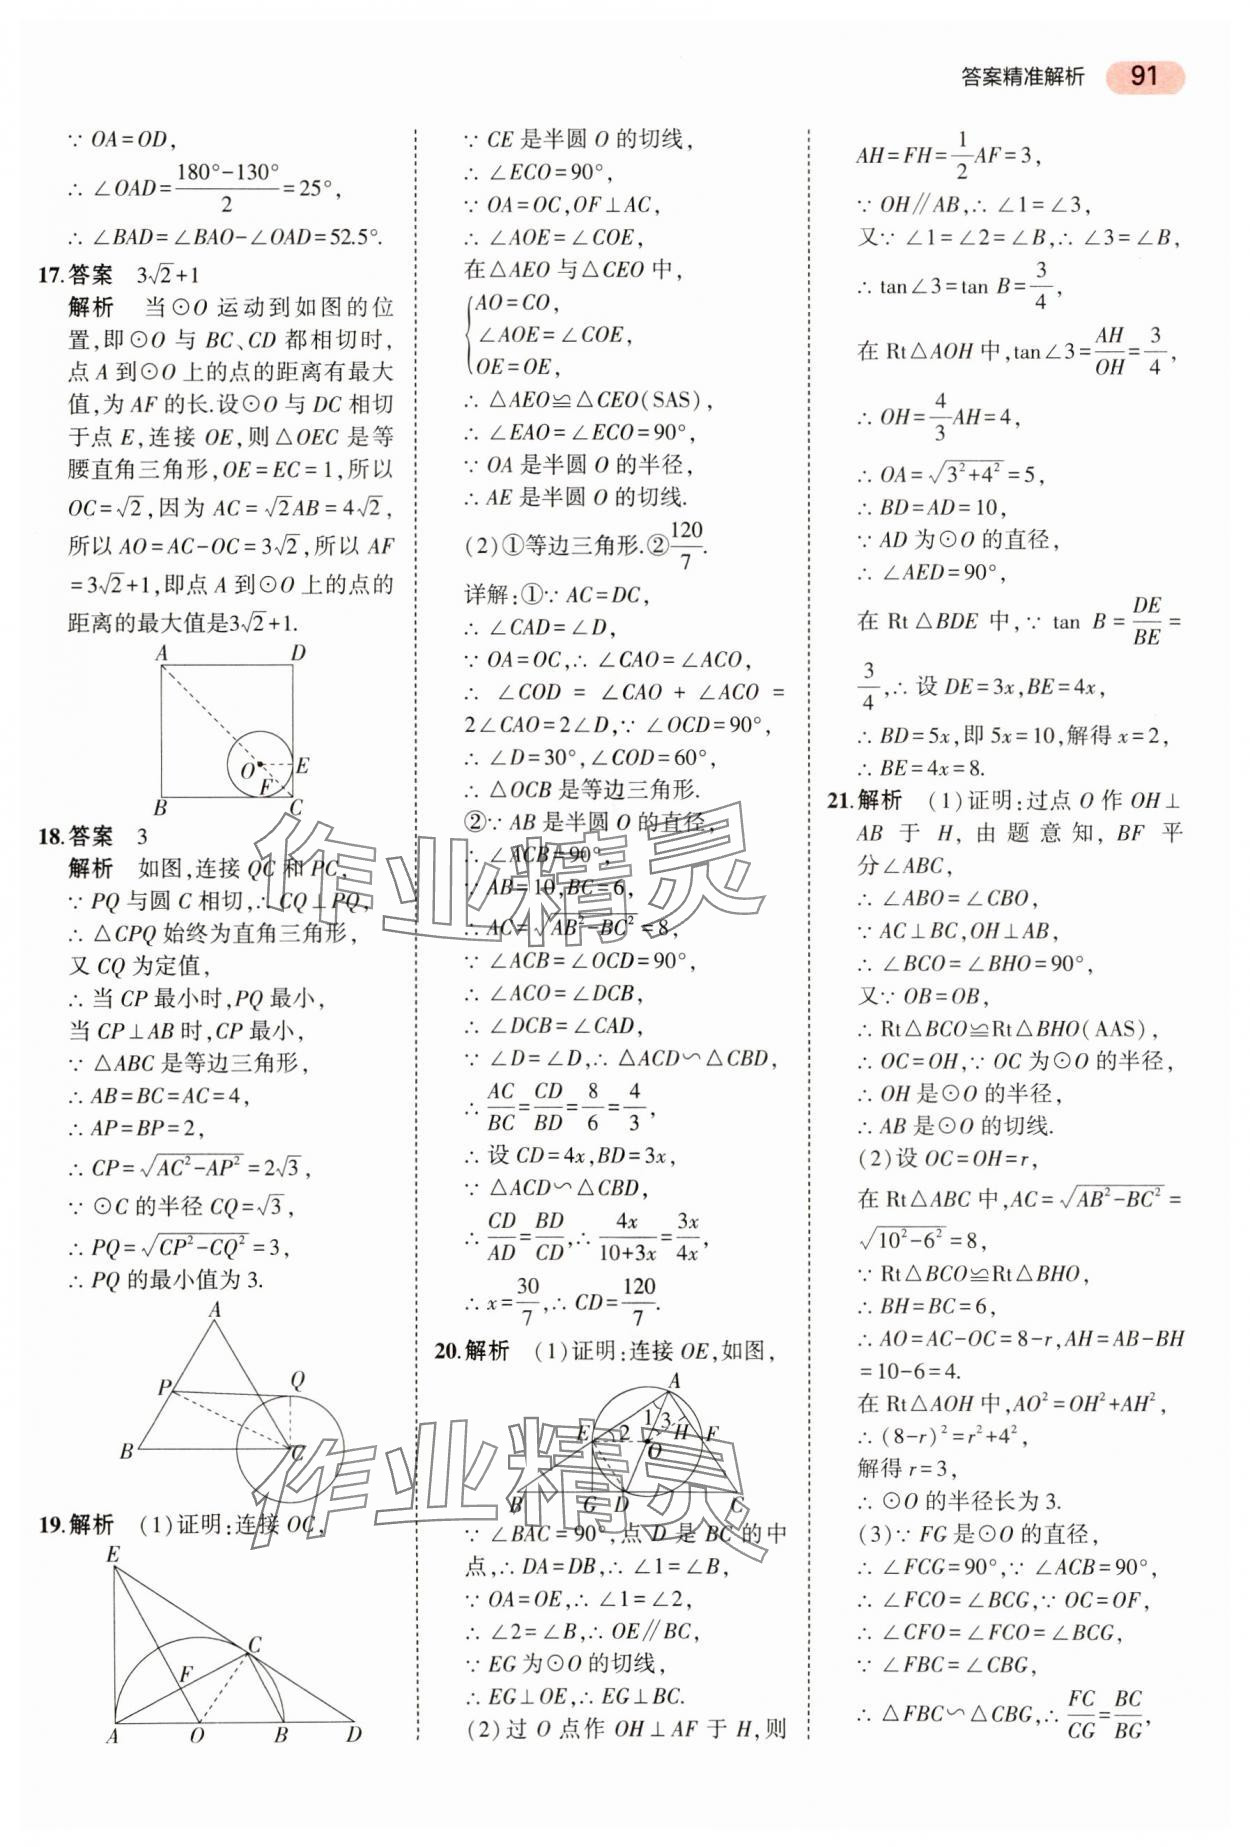 答案精准解析 91
∵ OA=OD,
∴ ∠OAD=\frac{180°-130°}{2}=25°,
∴ ∠BAD=∠BAO-∠OAD=52.5°.
17.答案 3√2+1
解析 当⊙O 运动到如图的位
置,即⊙O 与 BC、CD 都相切时,
点 A 到⊙O 上的点的距离有最大
值,为 AF 的长.设⊙O 与 DC 相切
于点 E,连接 OE,则△OEC 是等
腰直角三角形,OE=EC=1,所以
OC=√2,因为 AC=√2AB=4√2,
所以 AO=AC-OC=3√2,所以 AF
=3√2+1,即点 A 到⊙O 上的点的
距离的最大值是3√2+1.
A D
O E
F
B C
18.答案 3
解析 如图,连接 QC 和 PC,
∵ PQ 与圆 C 相切,∴ CQ⊥PQ,
∴ △CPQ 始终为直角三角形,
又 CQ 为定值,
∴ 当 CP 最小时,PQ 最小,
当 CP⊥AB 时,CP 最小,
∵ △ABC 是等边三角形,
∴ AB=BC=AC=4,
∴ AP=BP=2,
∴ CP=√(AC²-AP²)=2√3,
∵ ⊙C 的半径 CQ=√3,
∴ PQ=√(CP²-CQ²)=3,
∴ PQ 的最小值为 3.
A
P Q
B C
19.解析 (1)证明:连接 OC,
E
C
F
A O B D
∵ CE 是半圆 O 的切线,
∴ ∠ECO=90°,
∵ OA=OC,OF⊥AC,
∴ ∠AOE=∠COE,
在△AEO 与△CEO 中,
{AO=CO,
∠AOE=∠COE,
OE=OE,
∴ △AEO≌△CEO(SAS),
∴ ∠EAO=∠ECO=90°,
∵ OA 是半圆 O 的半径,
∴ AE 是半圆 O 的切线.
(2)①等边三角形.②\frac{120}{7}.
详解:①∵ AC=DC,
∴ ∠CAD=∠D,
∵ OA=OC,∴ ∠CAO=∠ACO,
∴ ∠COD = ∠CAO + ∠ACO =
2∠CAO=2∠D,∵ ∠OCD=90°,
∴ ∠D=30°,∠COD=60°,
∴ △OCB 是等边三角形.
②∵ AB 是半圆 O 的直径,
∴ ∠ACB=90°,
∵ AB=10,BC=6,
∴ AC=√(AB²-BC²)=8,
∵ ∠ACB=∠OCD=90°,
∴ ∠ACO=∠DCB,
∴ ∠DCB=∠CAD,
∵ ∠D=∠D,∴ △ACD∽△CBD,
∴ \frac{AC}{BC}=\frac{CD}{BD}=\frac{8}{6}=\frac{4}{3},
∴ 设 CD=4x,BD=3x,
∵ △ACD∽△CBD,
∴ \frac{CD}{AD}=\frac{BD}{CD},∴ \frac{4x}{10+3x}=\frac{3x}{4x},
∴ x=\frac{30}{7},∴ CD=\frac{120}{7}.
20.解析 (1)证明:连接 OE,如图,
A
1 3
E 2 H F
O
B G D C
∵ ∠BAC=90°,点 D 是 BC 的中
点,∴ DA=DB,∴ ∠1=∠B,
∵ OA=OE,∴ ∠1=∠2,
∴ ∠2=∠B,∴ OE∥BC,
∵ EG 为⊙O 的切线,
∴ EG⊥OE,∴ EG⊥BC.
(2)过 O 点作 OH⊥AF 于 H,则
AH=FH=\frac{1}{2}AF=3,
∵ OH∥AB,∴ ∠1=∠3,
又∵ ∠1=∠2=∠B,∴ ∠3=∠B,
∴ tan∠3=tan B=\frac{3}{4},
在 Rt△AOH 中,tan∠3=\frac{AH}{OH}=\frac{3}{4},
∴ OH=\frac{4}{3}AH=4,
∴ OA=√(3²+4²)=5,
∴ BD=AD=10,
∵ AD 为⊙O 的直径,
∴ ∠AED=90°,
在 Rt△BDE 中,∵ tan B=\frac{DE}{BE}=
\frac{3}{4},∴ 设 DE=3x,BE=4x,
∴ BD=5x,即 5x=10,解得 x=2,
∴ BE=4x=8.
21.解析 (1)证明:过点 O 作 OH⊥
AB 于 H,由题意知,BF 平
分∠ABC,
∴ ∠ABO=∠CBO,
∵ AC⊥BC,OH⊥AB,
∴ ∠BCO=∠BHO=90°,
又∵ OB=OB,
∴ Rt△BCO≌Rt△BHO(AAS),
∴ OC=OH,∵ OC 为⊙O 的半径,
∴ OH 是⊙O 的半径,
∴ AB 是⊙O 的切线.
(2)设 OC=OH=r,
在 Rt△ABC 中,AC=√(AB²-BC²)=
√(10²-6²)=8,
∵ Rt△BCO≌Rt△BHO,
∴ BH=BC=6,
∴ AO=AC-OC=8-r,AH=AB-BH
=10-6=4.
在 Rt△AOH 中,AO²=OH²+AH²,
∴ (8-r)²=r²+4²,
解得 r=3,
∴ ⊙O 的半径长为 3.
(3)∵ FG 是⊙O 的直径,
∴ ∠FCG=90°,∵ ∠ACB=90°,
∴ ∠FCO=∠BCG,∵ OC=OF,
∴ ∠CFO=∠FCO=∠BCG,
∵ ∠FBC=∠CBG,
∴ △FBC∽△CBG,∴ \frac{FC}{CG}=\frac{BC}{BG},
作业精灵
作业精灵